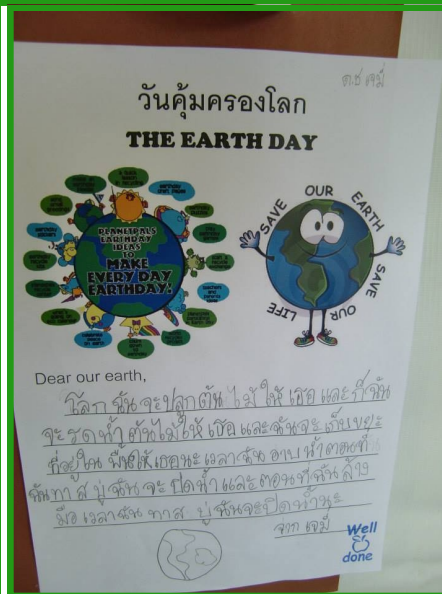 ด.ช เจมี่
วันคุ้มครองโลก
THE EARTH DAY
PLANETPALS
EARTHDAY
IDEAS
TO
MAKE
EVERY DAY
EARTHDAY!
SAVE OUR EARTH SAVE OUR LIFE
Dear our earth,
โลก ฉัน จะปลูกต้น ไม้ ให้ เธอ และ ก็ ฉัน
จะ รดน้ำ ต้นไม้ให้ เธอ และ ฉันจะ เก็บขยะ
ที่อยู่ใน พื้นให้เธอนะ เวลาฉัน อาบ น้ำตอนที่
ฉันทา ส บู่ ฉัน จะ ปิดน้ำ และ ตอนที่ฉัน ล้าง
มือ เวลาฉัน ทาส บู่ ฉันจะปิดน้ำนะ
จาก เจมี่
Well
done